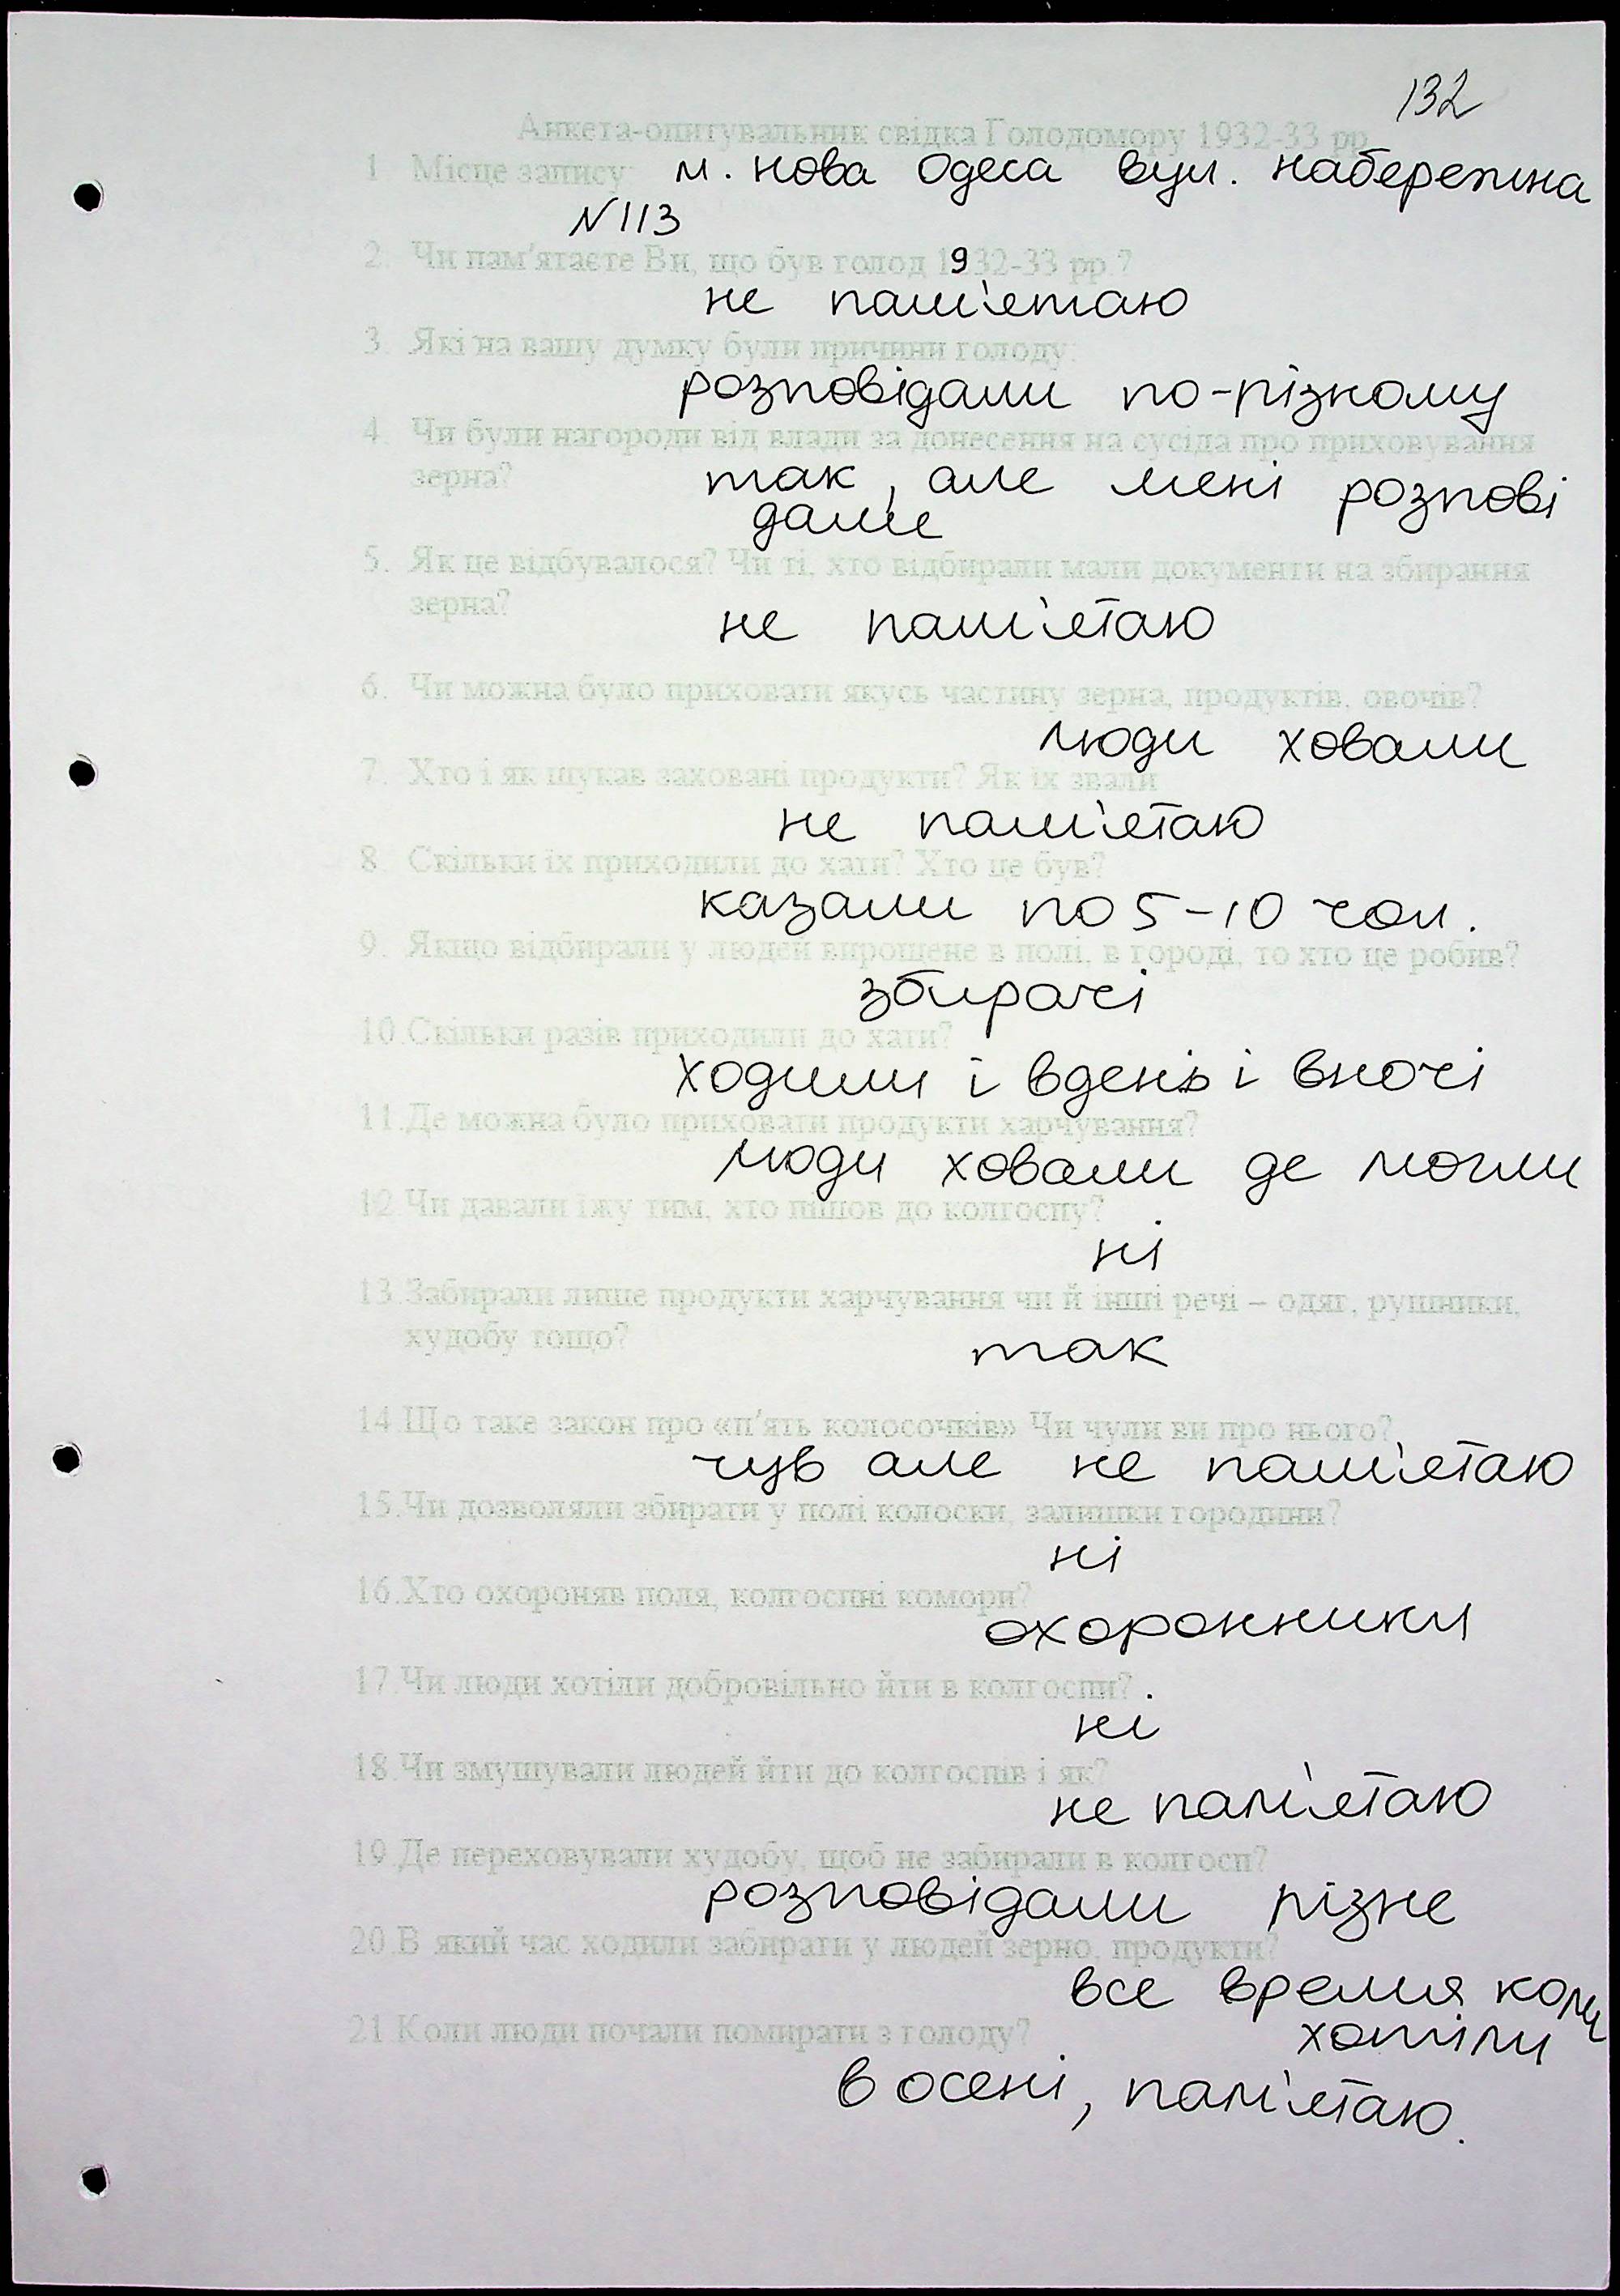 132
Анкета-опитувальник свідка Голодомору 1932-33 рр.
1 Місце запису: м. нова Одеса вул. набережна
N 113
2. Чи пам'ятаєте Ви, що був голод 1932-33 рр.?
не пам'ятаю
3. Які на вашу думку були причини голоду:
розповідали по-різному
4. Чи були нагороди від влади за донесення на сусіда про приховування
зерна? так, але мені розпові
дали
5. Як це відбувалося? Чи ті, хто відбирали мали документи на збирання
зерна?
не пам'ятаю
6. Чи можна було приховати якусь частину зерна, продуктів, овочів?
люди ховали
7. Хто і як шукав заховані продукти? Як їх звали
не пам'ятаю
8. Скільки їх приходили до хати? Хто це був?
казали по 5-10 чол.
9. Якщо відбирали у людей вирощене в полі, в городі, то хто це робив?
збирачі
10. Скільки разів приходили до хати?
ходили і вдень і вночі
11. Де можна було приховати продукти харчування?
люди ховали де могли
12. Чи давали їжу тим, хто пішов до колгоспу?
ні
13. Забирали лише продукти харчування чи й інші речі – одяг, рушники,
худобу тощо?
так
14. Що таке закон про «п'ять колосочків» Чи чули ви про нього?
чув але не пам'ятаю
15. Чи дозволяли збирати у полі колоски, залишки городини?
ні
16. Хто охороняв поля, колгоспні комори?
охоронники
17. Чи люди хотіли добровільно йти в колгоспи?
ні
18. Чи змушували людей йти до колгоспів і як?
не пам'ятаю
19. Де переховували худобу, щоб не забирали в колгосп?
розповідали різне
20. В який час ходили забирати у людей зерно, продукти?
все время коли
хотіли
21 Коли люди почали помирати з голоду?
в осені, пам'ятаю.